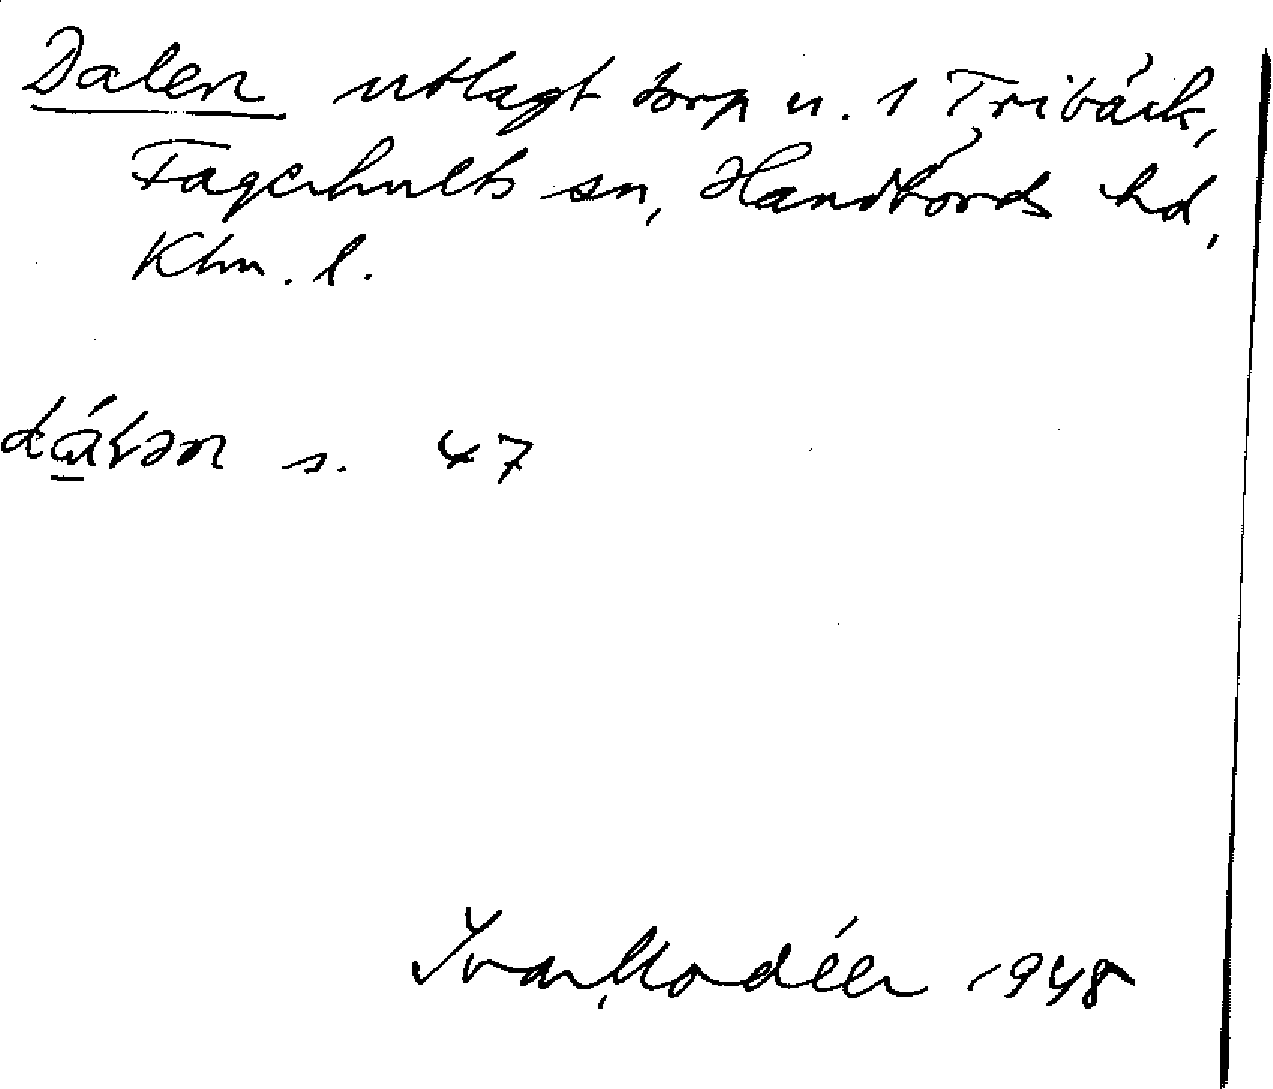 Dalen utlagt torp u. 1 Tribäck,
Fagerhults sn, Handbörds hd,
Klm. l.
s. 47
Ivar Modéer 1948